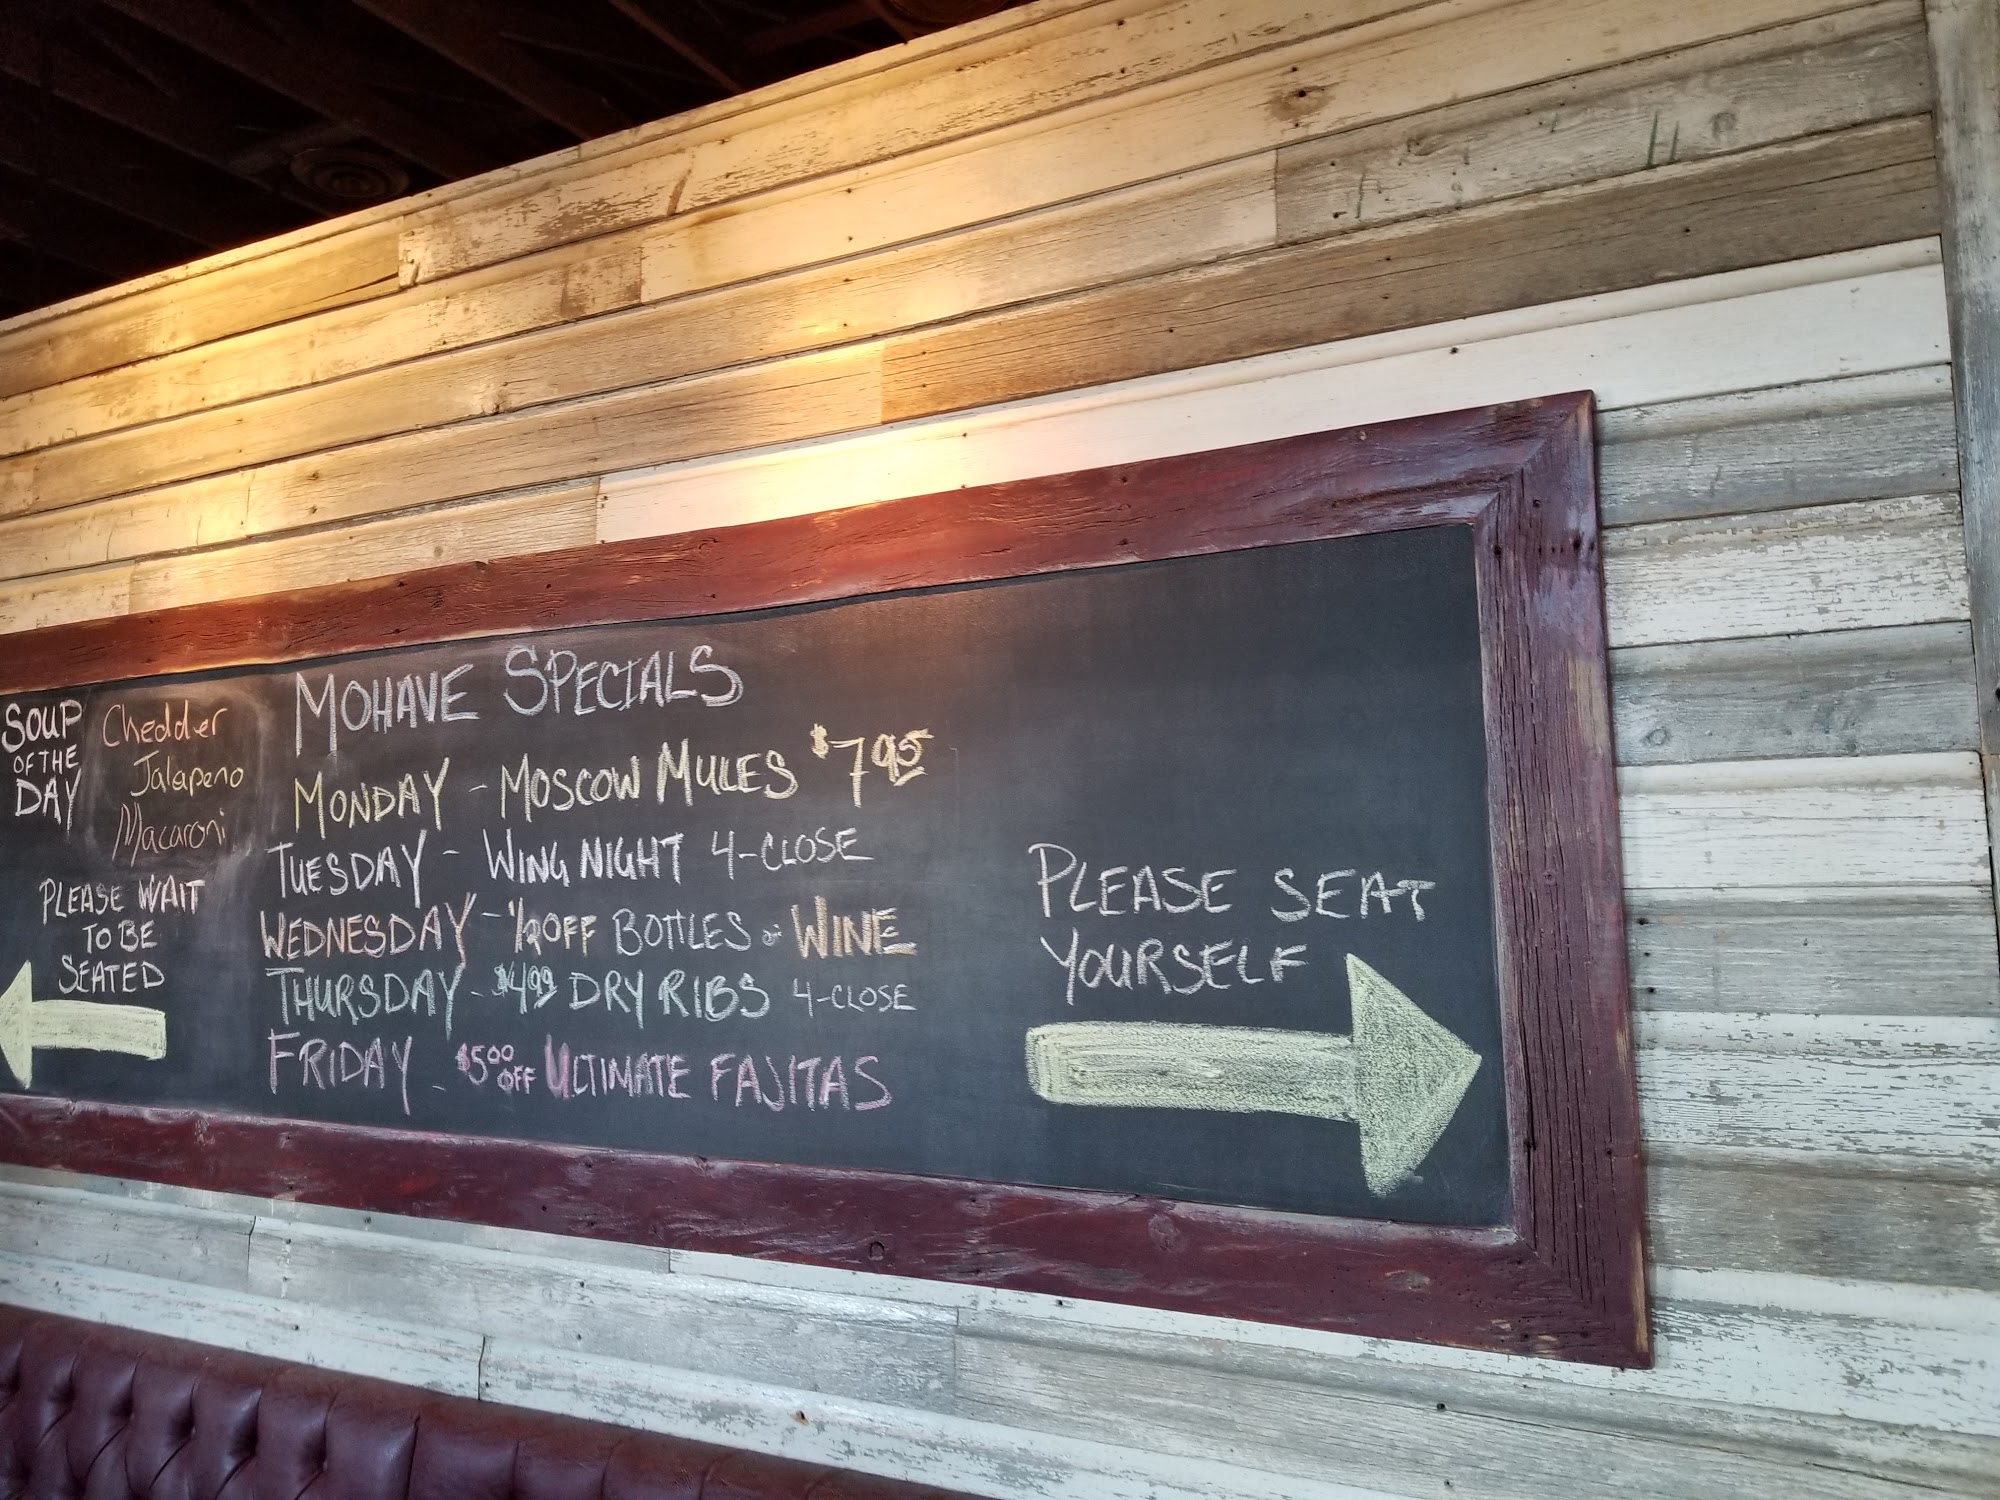 SOUP
OF THE
DAY
Chedder
Jalapeno
Macaroni
PLEASE WAIT
TO BE
SEATED
MOHAVE SPECIALS
MONDAY - MOSCOW MULES $7.95
TUESDAY - WING NIGHT 4-CLOSE
WEDNESDAY - 1/2 OFF BOTTLES of WINE
THURSDAY - $4.99 DRY RIBS 4-CLOSE
FRIDAY - $5.00 OFF ULTIMATE FAJITAS
PLEASE SEAT
YOURSELF